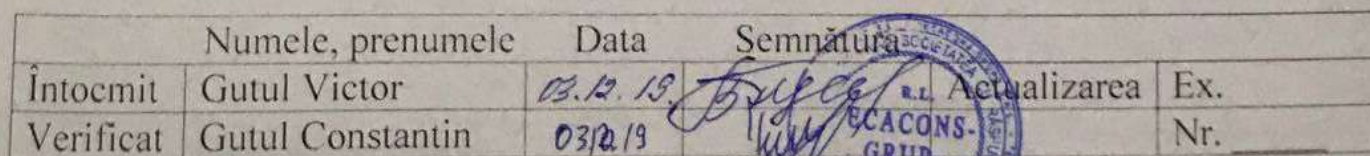 Numele, prenumele Data Semnătura
Întocmit Gutul Victor 03.12.19. Actualizarea Ex.
Verificat Gutul Constantin 03.12.19 Nr.
SOCIETATEA
R.L.
ECACONS-
GRUP